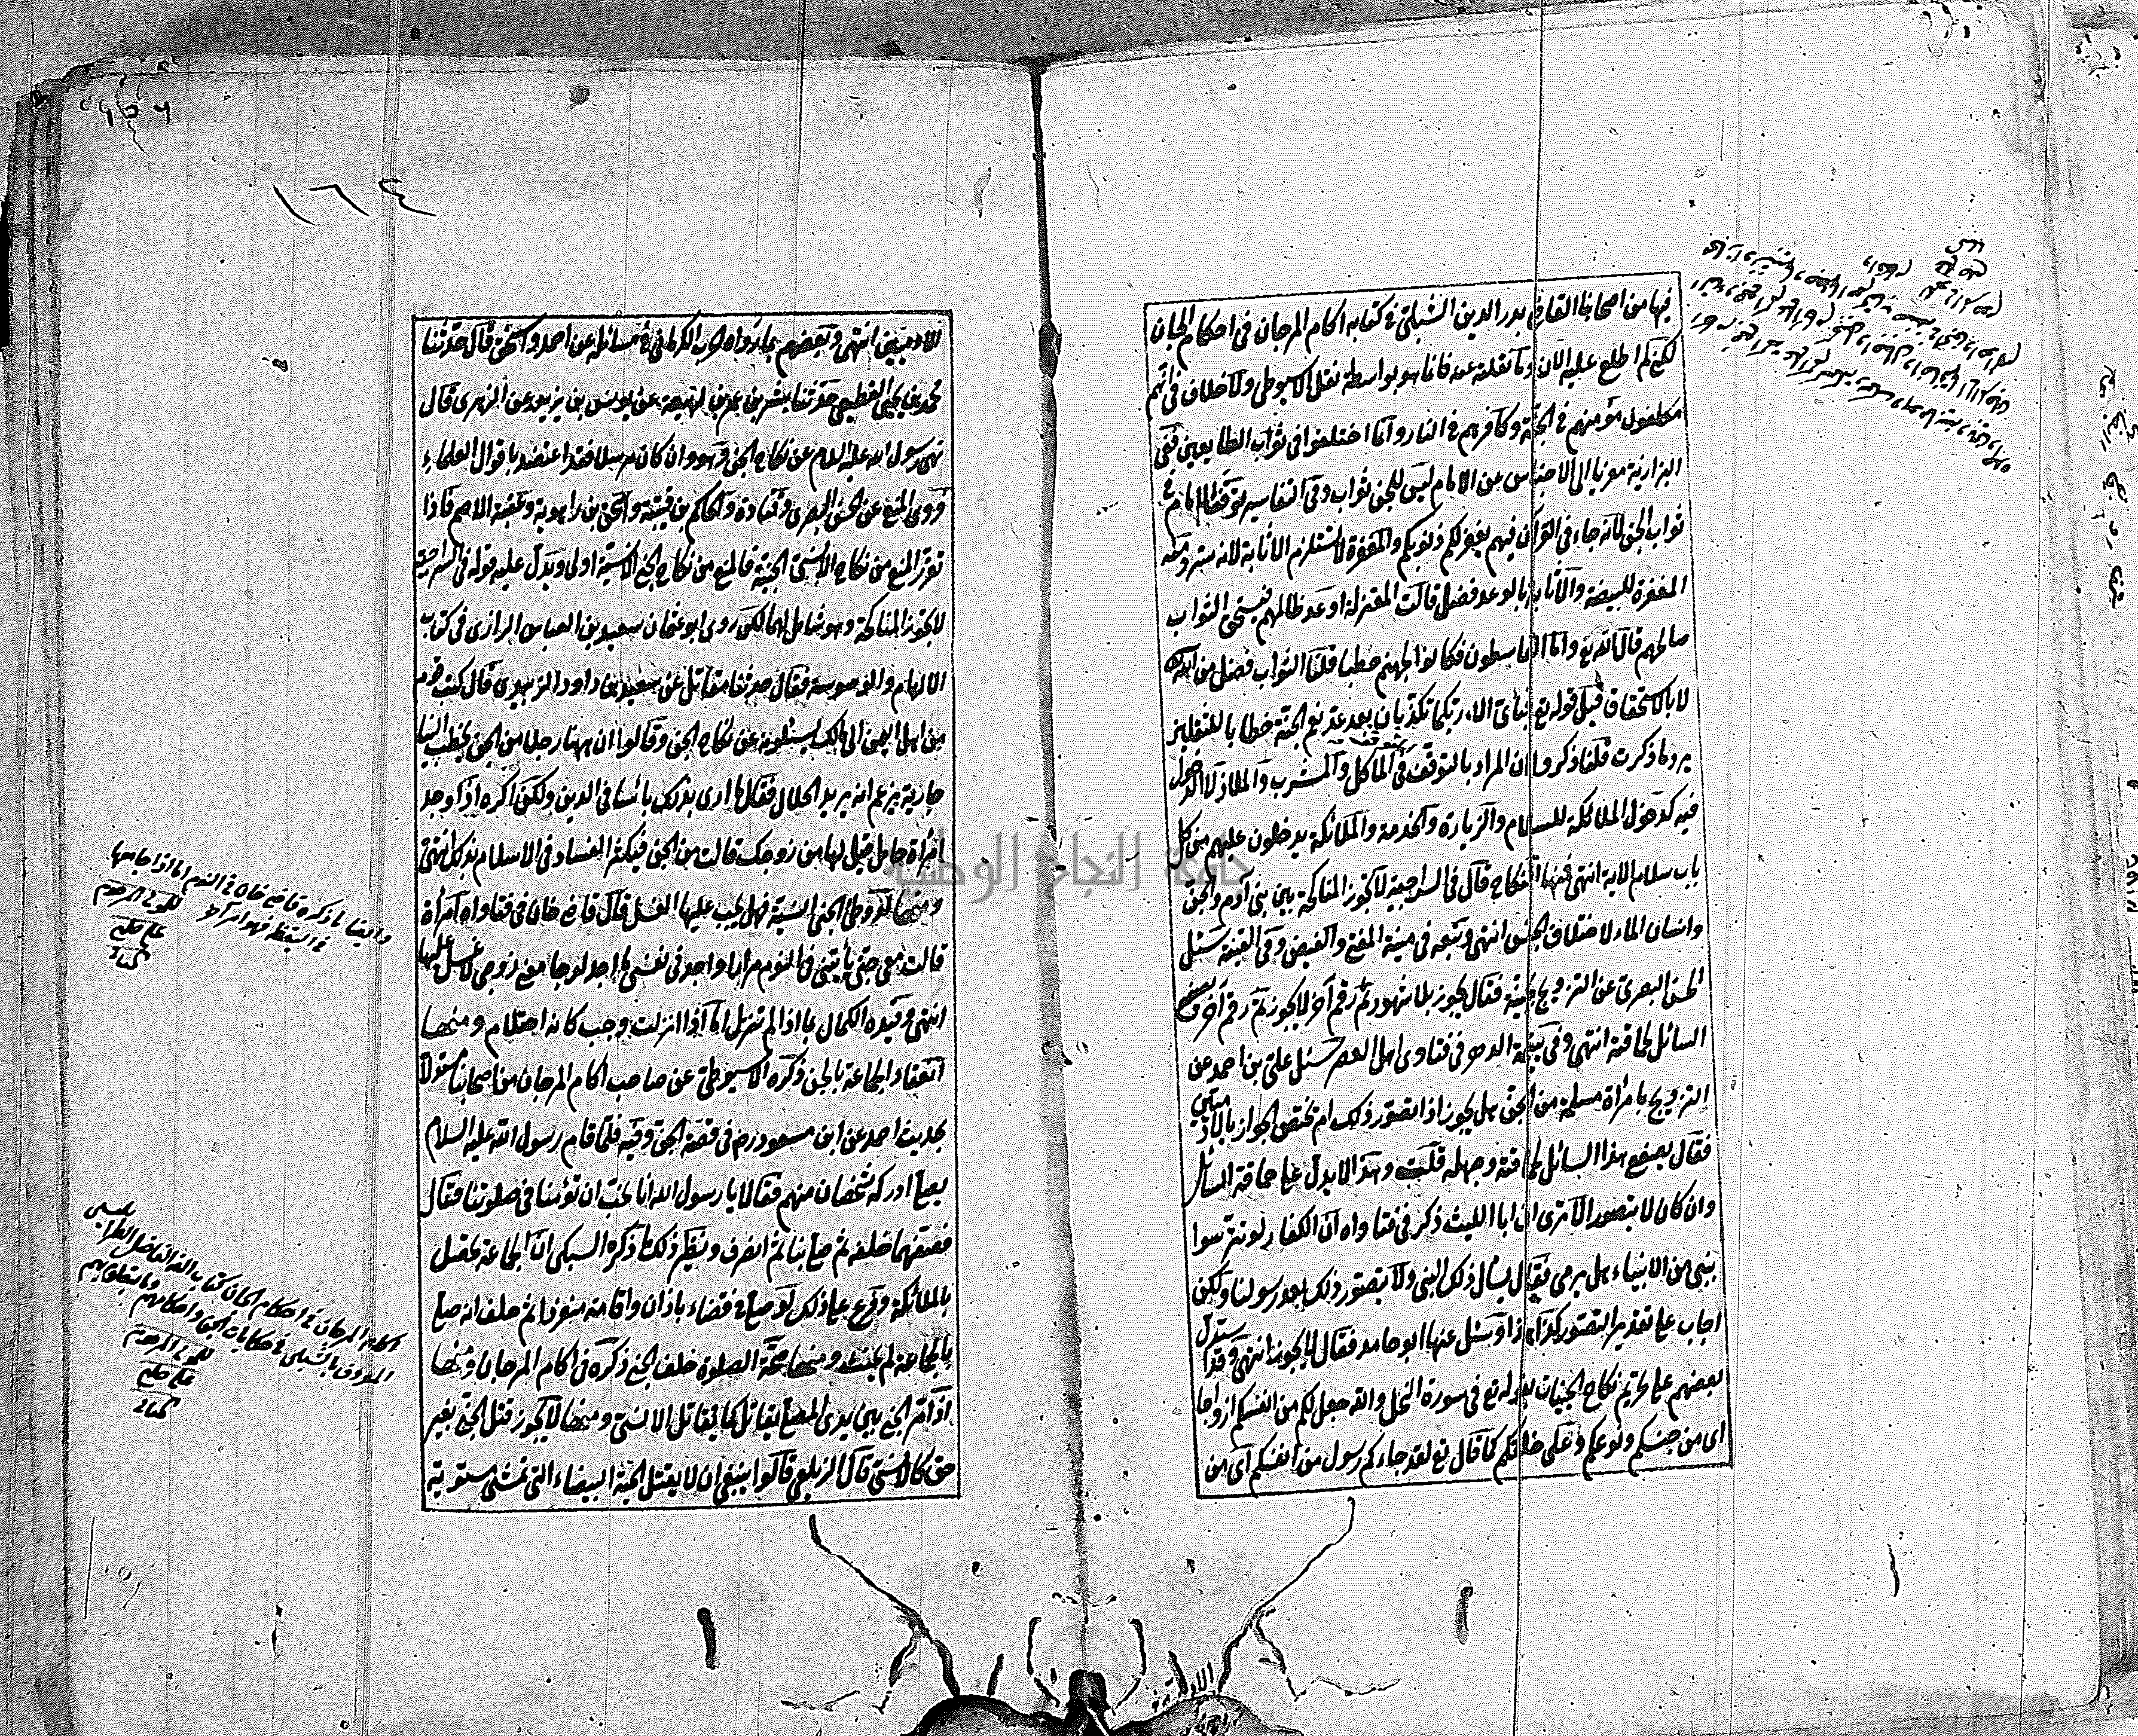 فيها من اصحابنا القاضي بدر الدين الشبلي في كتابه اكام المرجان في احكام الجان
لكني لم اطلع عليه الآن وما نقلته عنه فانما هو بواسطة نقل الاسيوطي ولا خلاف في انهم
مكلفون مؤمنهم في الجنة وكافرهم في النار وانما اختلفوا في ثواب الطايعين ففي
البزازية معزيا الى الاجناس من الامام ليس للجن ثواب وفي التفاسير توقف الامام في
ثواب الجن لانه جاء في القرآن فيهم يغفر لكم ذنوبكم والمغفرة لا تستلزم الاثابة لانه ستر ومنه
المغفرة للبيضة والاثابة بالوعد فضل قالت المعتزلة اوعد ظالمهم فيستحق الثواب
صالحهم قال الله تع واما القاسطون فكانوا لجهنم حطبا قلنا الثواب فضل من الله
لا بالاستحقاق فان قيل قوله تع فباي الاء ربكما تكذبان بعد عد نعم الجنة خطابا للثقلين
يرد ما ذكرت قلنا ذكروا ان المراد بالتوقف في المآكل والمشرب والملاذ لا الدخول
فيه كدخول الملائكة للسلام والزيارة والخدمة والملائكة يدخلون عليهم من كل
باب سلام الاية انتهى فمنها النكاح قال في السراجية لا تجوز المناكحة بين بني آدم والجن
وانسان الماء لاختلاف الجنس انتهى وتبعه في منية المفتي والفيض وفي القنية سئل
الحسن البصري عن التزويج بجنية فقال يجوز بلا شهود ثم رقم آخر لا يجوز ثم رقم آخر يصفع
السائل لحماقته انتهى وفي يتيمة الدهر في فتاوى اهل العصر سئل علي بن احمد عن
التزويج بامرأة مسلمة من الجن هل يجوز اذا تصور ذلك ام يختص الجواز بالآدميين
فقال يصفع هذا السائل لحماقته وجهله قلت وهذا لا يدل على حماقة السائل
وان كان لا يتصور الا ترى ان ابا الليث ذكر في فتاواه ان الكفار لو تترسوا
بنبي من الانبياء هل يرمى فقال يسأل ذلك النبي ولا يتصور ذلك بعد رسولنا ولكن
اجاب على تقدير التصور كذا هذا وسئل عنها ابو حامد فقال لا يجوز انتهى وقد استدل
بعضهم على تحريم نكاح الجنيات بقوله تع في سورة النحل والله جعل لكم من انفسكم ازواجا
اي من جنسكم ونوعكم وعلى خلقكم كما قال تع لقد جاءكم رسول من انفسكم اي من
١٦٤
الادميين انتهى وبعضهم بما رواه حرب الكرماني في مسائله عن احمد واسحق قال حدثنا
محمد بن يحيى القطيعي حدثنا بشر بن عمر بن لهيعة عن يونس بن يزيد عن الزهري قال
نهى رسول الله عليه السلام عن نكاح الجن وهو وان كان مرسلا فقد اعتضد باقوال العلماء
فروى المنع عن الحسن البصري وقتادة والحاكم بن قتيبة واسحق بن راهوية وعقبة الاصم فاذا
تقرر المنع من نكاح الانسي الجنية فالمنع من نكاح الجني الانسية اولى ويدل عليه قوله في السراجية
لا تجوز المناكحة وهو شامل لهما لكن روى ابو عثمان سعيد بن العباس الرازي في كتاب
الالهام والوسوسة فقال حدثنا مقاتل عن سعيد بن داود الزبيدي قال كتب قوم
من اهل اليمن الى مالك يسئلونه عن نكاح الجن وقالوا ان ههنا رجلا من الجن يخطب الينا
جارية يزعم انه يريد الحلال فقال ما ارى بذلك بأسا في الدين ولكن اكره اذا وجد
امرأة حامل قيل لها من زوجك قالت من الجن فيكثر الفساد في الاسلام بذلك انتهى
ومنها لو وطئ الجني انسية فهل يجب عليها الغسل قال قاضي خان في فتاواه امرأة
قالت معي جني يأتيني في النوم مرارا واجد في نفسي ما اجد لو جامعني زوجي لا غسل عليها
انتهى وقيده الكمال بما اذا لم تنزل اما اذا انزلت وجب كانه احتلام ومنها
انعقاد الجماعة بالجن ذكره الاسيوطي عن صاحب اكام المرجان من اصحابنا مستدلا
بحديث احمد عن ابن مسعود رم في قصة الجن وفيه فلما قام رسول الله عليه السلام
يصلي ادركه شخصان منهم فقالا يا رسول الله انا نحب ان تؤمنا في صلوتنا فقال
فصفهما خلفه ثم صلى بنا ثم انصرف ونظير ذلك ما ذكره السبكي ان الجماعة تحصل
بالملائكة وفرع على ذلك لو صلى في فضاء باذان واقامة منفردا ثم حلف انه صلى
بالجماعة لم يحنث ومنها صحة الصلوة خلف الجني ذكره في اكام المرجان ومنها
اذا مر الجني بين يدي المصلي يقاتل كما يقاتل الانسي ومنها لا يجوز قتل الجني بغير
حق كالانسي قال الزيلعي قالوا ينبغي ان لا يقتل الحية البيضاء التي تمشي مستوية
وايضا لما ذكره قاضي خان في النوم اما اذا جامعها
في اليقظة فهو امر آخر
اكام المرجان في احكام الجان كتاب
المعروف بالشبلي في حكايات الجن واحكامهم
جامعة النجاح الوطنية